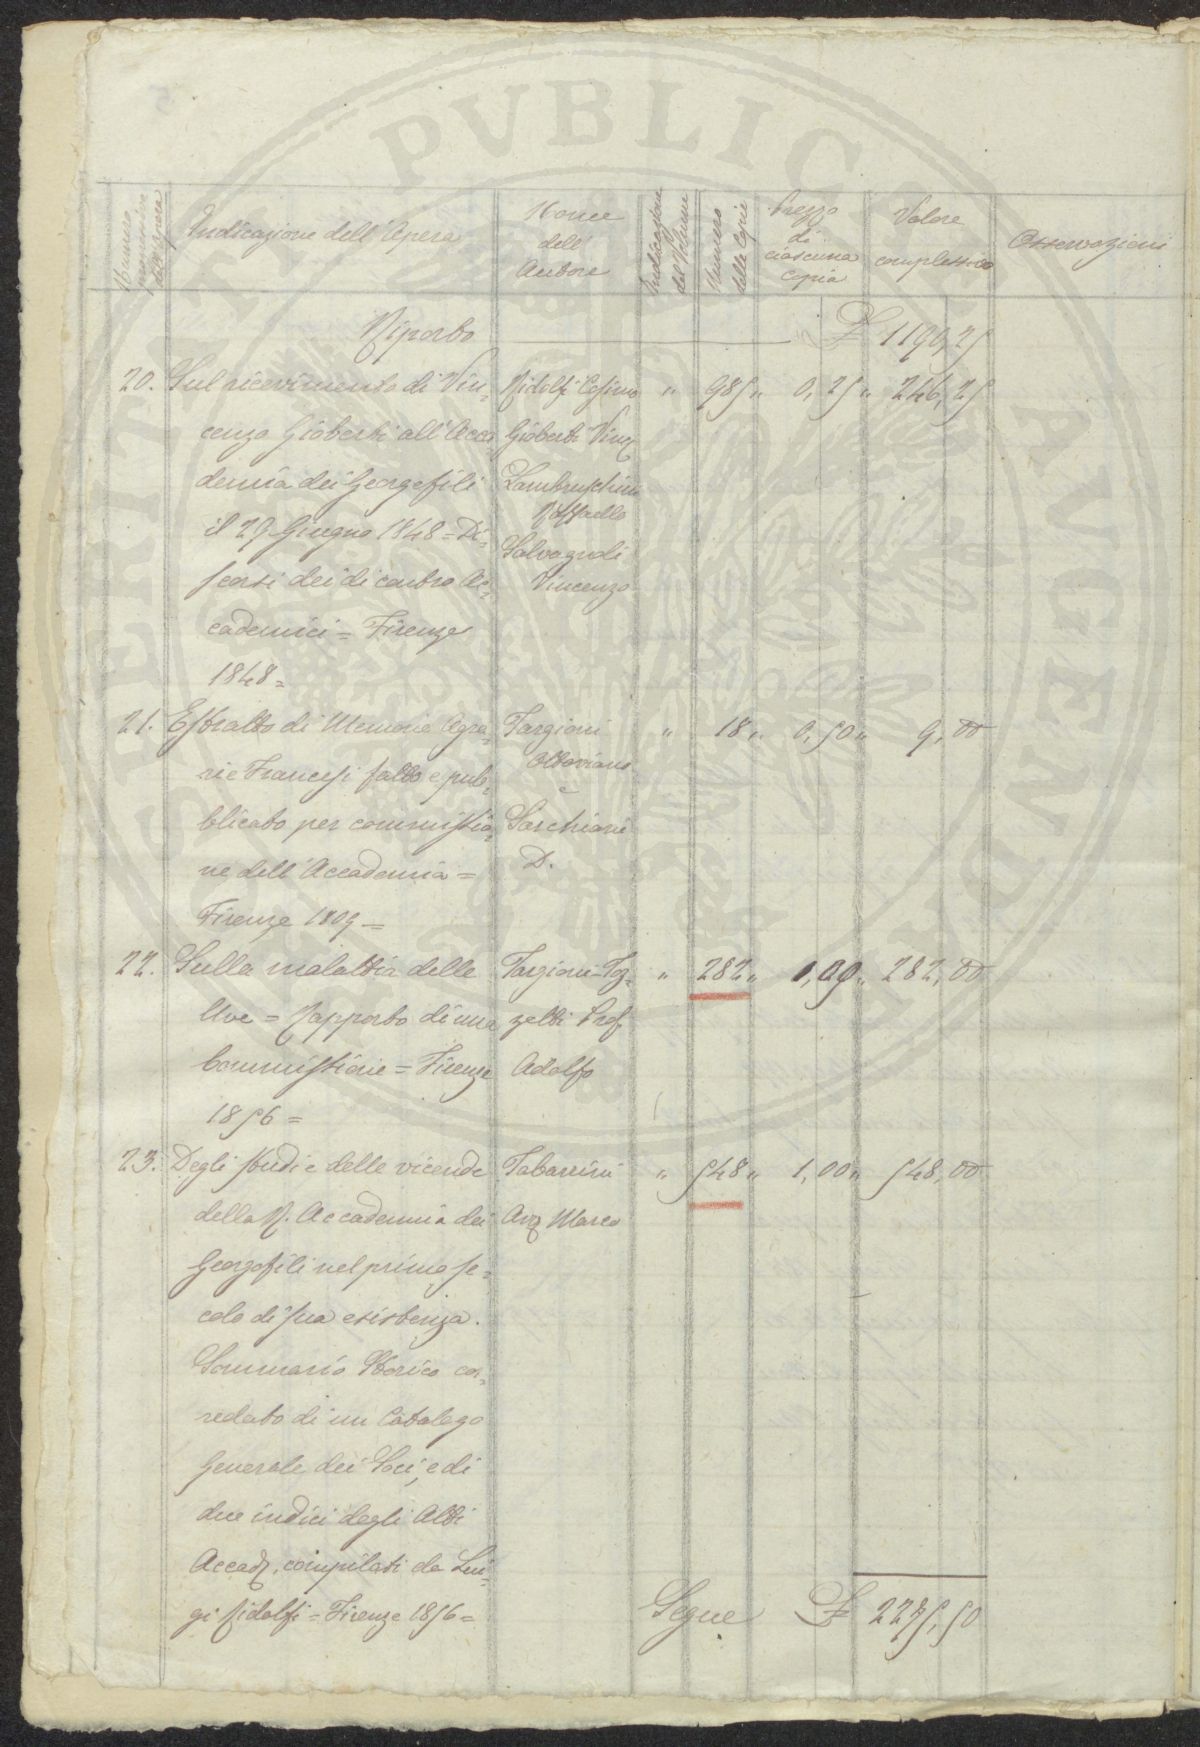 PUBLICAE
PROSPERITATI
AUGENDAE
Numero
progressivo
dell'Opera
Indicazione dell'Opera
Nome
dell'
Autore
Indicazione
del Volume
Numero
delle Copie
Prezzo
di
ciascuna
copia
Valore
complessivo
Osservazioni
Riporto £ 1190,25
20. Sul ricevimento di Vin= Ridolfi Cosimo " 985 " 0,25 " 246,25
cenzo Gioberti all'Acca= Gioberti Vinc.
demia dei Georgofili Lambruschini
Raffaello
il 29 Giugno 1848 = Di=
Salvagnoli
scorsi dei di contro Ac= Vincenzo
cademici = Firenze
1848 =
21. Estratto di Memorie Agra= Targioni " 18 " 0,50 " 9,00
Ottaviano
rie Francesi fatto e pub= e
blicato per commissio= Sarchiani
ne dell'Accademia = D.
Firenze 1809 =
22. Sulla malattia delle Targioni-Toz= " 282 " 1,00 " 282,00
Uve = Rapporto di una zetti Prof.
Commissione = Firenze Adolfo
1856 =
23. Degli studi e delle vicende Tabarrini " 548 " 1,00 " 548,00
della R. Accademia dei Avv. Marco
Georgofili nel primo se=
colo di sua esistenza.
Sommario Storico cor=
redato di un Catalogo
Generale dei Soci, e di
due indici degli Atti
Accad. compilati da Lui=
gi Ridolfi = Firenze 1856 = Segue £ 2275,50